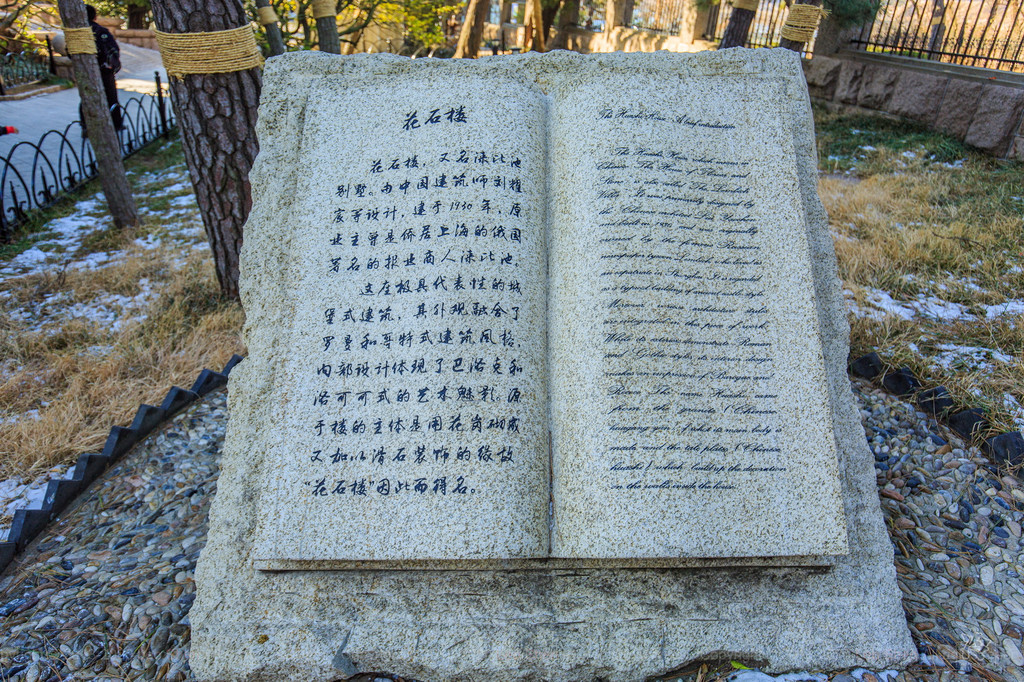 花石楼
花石楼，又名涞比池
别墅。由中国建筑师刘耀
宸等设计，建于1930年，原
业主曾是侨居上海的俄国
著名的报业商人涞比池。
这座极具代表性的城
堡式建筑，其外观融合了
罗曼和哥特式建筑风格，
内部设计体现了巴洛克和
洛可可式的艺术魅影。源
于楼的主体是用花岗砌成
又加以滑石装饰的缘故
“花石楼”因此而得名。
The Huashi House, which means in
Chinese "The House of Flower and
Stone" is also called "The
Villa". It was primarily designed by
the Chinese architect Liu
and built in 1930, and was originally
owned by the famous Russian
newspaper tycoon who lived as
an expatriate in Shanghai. It is regarded
as a typical building of ancient castle style.
architecture styles
are integrated in this piece of work.
While its exterior demonstrates Roman
and Gothic styles, its interior design
makes an impression of Baroque and
Rococo. The name Huashi, came
from the granite (Chinese,
huagang yan) of what its main body is
made and the talc plates (Chinese,
huashi) which build up the decoration
on the walls inside the house.